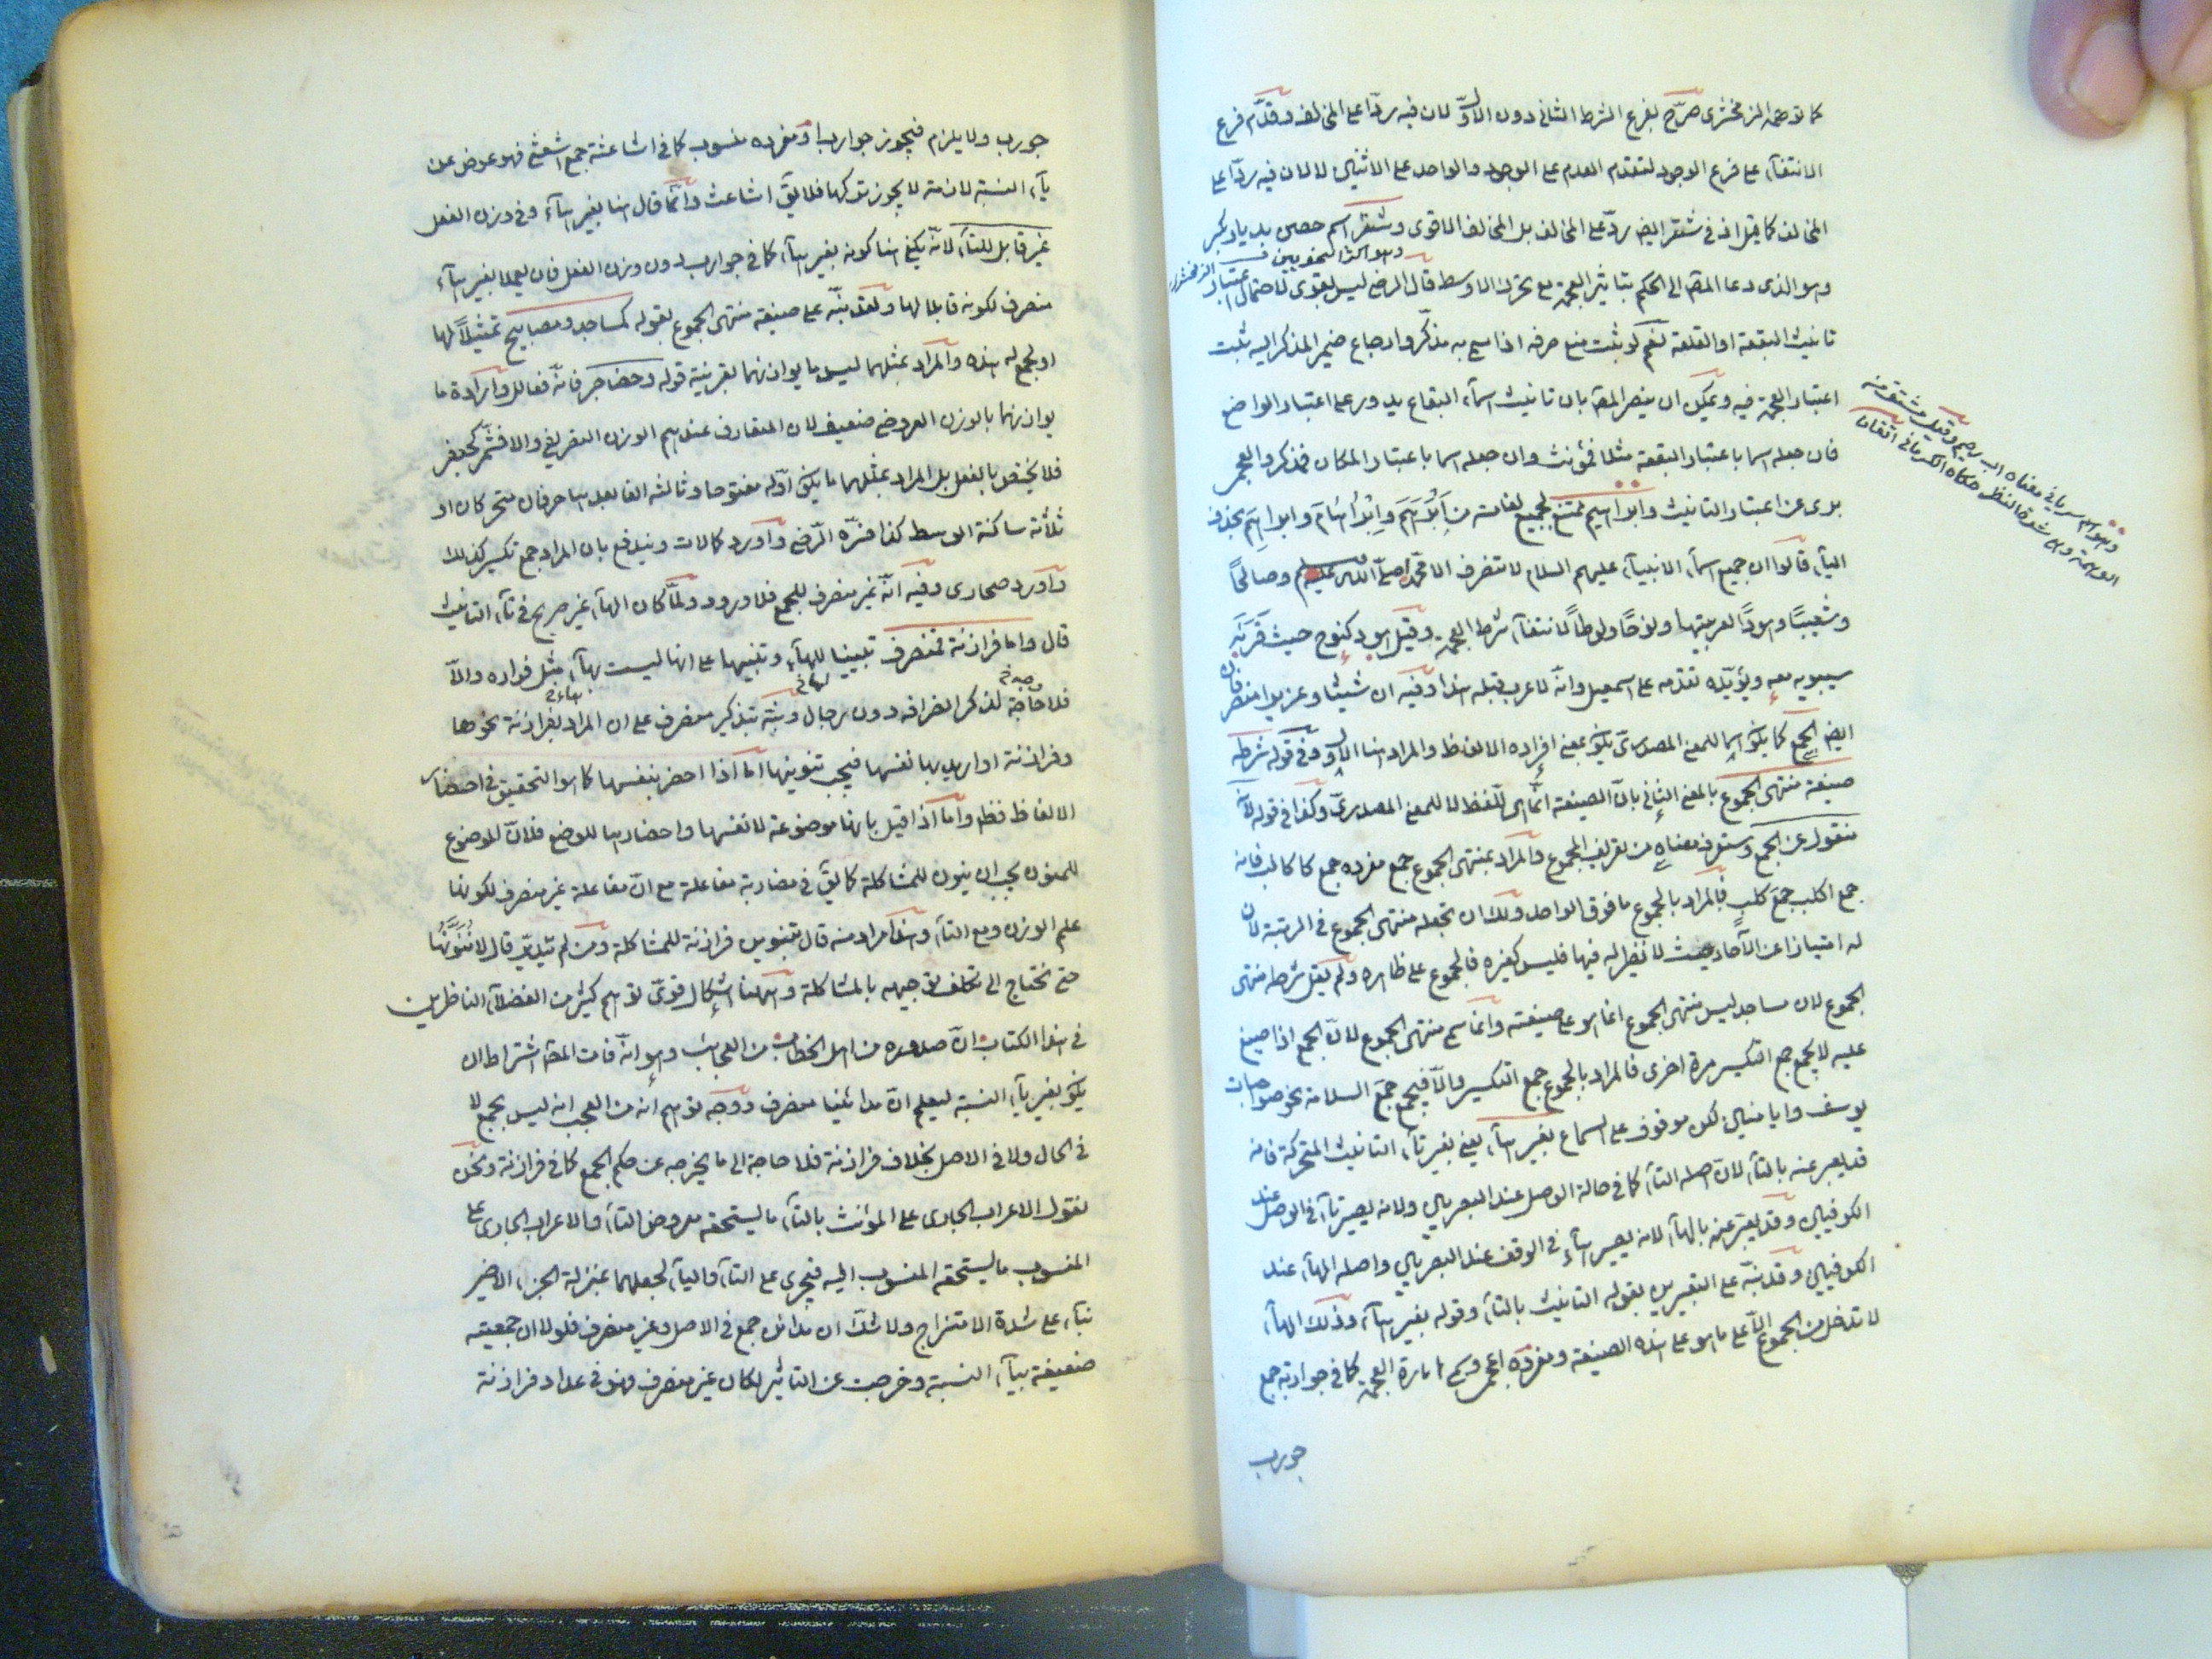 كما توهمه الزمخشرى صرّح بفرع الشرط الثانى دون الاوّل لان فيه ردّا على المخالف وقدّم فرع
الانتفآء على فرع الوجود لتقدم العدم على الوجود والواحد على الاثنين لا لان فيه ردّا على
المخالف كما قيل اذ فى شتر ايضا ردّ على المخالف بل المخالف الاقوى وشتر اسم حصن بديار بكر
وهو اكثر النحويين
وهو الذى دعا المصّ الى الحكم بتاثير العجمة مع تحرّك الاوسط قال الرضى ليس بقوى لاحتمال اعتبار
الزمخشرى
تانيث البقعة او القلعة نعم لو ثبت منع صرفه اذا سمى به مذكّر وارجاع ضمير المذكر اليه يثبت
اعتبار العجمة فيه ويمكن ان ينصر المصّ بان تانيث اسمآء البقاع يدور على اعتبار الواضع
فان جعله اسما باعتبار البقعة مثلا فمؤنث وان جعله اسما باعتبار المكان فمذكر والعجم
برى عن اعتبار التانيث وابراهيم ممتنع لجميع لغاته من اَبْرَهَمَ وابْراهَامَ وابراهِمَ بحذف
اليآء قالوا ان جميع اسمآء الانبيآء عليهم السلام لا تنصرف الا محمّدا صلى الله عليه وسلم وصالحًا
وشعيبًا وهودًا لعربيتها ونوحًا ولوطًا لانتفآء شرط العجمة وقيل هود كنوح حيث قرنه
سيبويه معه ويؤيّده تقدمه على اسمعيل وانّه لا عرب قبله هذا وفيه ان شيثا وعزيرا منصرفان
ايضا الجمع كما يكون اسما للمعنى المصدرىّ يكون بمعنى افراده الالفاظ والمراد هنا الاول وفى قوله شرطه
صيغة منتهى الجموع بالمعنى الثانى بانّ الصيغة انّما هى للّفظ لا للمعنى المصدرىّ وكذا فى قوله لانّه
منقول عن الجمع وستعرف معناه من تعريف المجموع والمراد بمنتهى الجموع جمع مفرده جمع كاكالب فانه
جمع اكلب جمع كلبٍ فالمراد بالجموع ما فوق الواحد ولك ان تجعله منتهى الجموع فى المرتبة لان
له امتيازا عن الآحاد بحيث لا نظير له فيها فليس كغيره فالجموع على ظاهره ولم يقل شرطه منتهى
الجموع لان مساجد ليس منتهى الجموع انما هو على صيغته وانما سمى منتهى الجموع لانّ الجمع اذا صيغ
عليه لا يجمع جمع التكسير مرة اخرى فالمراد بالجموع جمع التكسير والّا فيجمع جمع السلامة نحو صواحبات
يوسف وايامنين لكن موقوف على السماع بغير هآء يعنى بغير تآء التانيث المتحركة فانه
قد يعبر عنه بالتآء لانّ اصله التآء كما فى حالة الوصل عند البصريين ولانه يصير تآء فى الوصل عند
الكوفيين وقد يعبّر عنه بالهآء لانه يصير هآء فى الوقف عند البصريين واصله الهآء عند
الكوفيين وقد نبّه على التعبيرين بقوله التانيث بالتآء وقوله بغير هآء وذلك الهآء
لا تدخل من الجموع الّا على ما هو على هذه الصيغة ومفرده اعجمى امارة العجمة كما فى جواربة جمع
جورب
وهو اسم سريانى معناه اب رحيم وقيل مشتق من
البرهمة وهى شدة النظر حكاه الكرمانى اتقان
جورب ولا يلزم فيجوز جوارب او مفرده منسوب كما فى اشاعثة جمع اشعثى فهو عوض عن
يآء النسبة لازمة لا يجوز تركها فلا يقّ اشاعث وانّما قال هنا بغير هآء وفى وزن الفعل
غير قابل للتآء لانّه يكفى هنا كونه بغير هآء كما فى جوارب دون وزن الفعل فان يعملا بغير هآء
منصرف لكونه قابلا لها ولقد نبّه على صيغة منتهى الجموع بقوله كمساجد ومصابيح تمثيلًا لها
او لجمع له هذه والمراد بمثلهما ليس ما يوازنهما بقرينة قوله وحضاجر فانه فعالل وارادة ما
يوازنهما بالوزن العروضى ضعيف لان المتعارف عندهم الوزن التصريفى والا فشمّر كجعفر
فلا يختص بالفعل بل المراد بمثلهما ما يكون اوّله مفتوحا وثالثه الفا بعدها حرفان متحركان او
ثلثة ساكنة الوسط كذا فسّره الرّضى واورد كمالات ويندفع بان المراد جمع تكسير كذلك
واورد صحارى وفيه انّه غير منصرف للجمع فلا ورود ولمّا كان الهآء غير صريح فى تآء التانيث
قال واما فرازنة فمنصرف تبيينا للهآء وتنبيها على انها ليست بهآء مثل فواره والّا
فلا حاجة لذكر انصرافه دون رجال ونبّه بتذكير منصرف على ان المراد بفرازنة نحوها
وفرازنة اوا اريد بها نفسها فيجب تنوينها اما اذا احضر بنفسها كما هو التحقيق فى احضار
الالفاظ فظه واما اذا قيل بانها موضوعة لانفسها واحضارها للوضع فلانّ الموضوع
للمنون يجب ان ينون للمشاكلة كما يقّ فى مضاربة مفاعلة مع انّ مفاعلة غير منصرف لكونها
علم الوزن ومع التآء وهذا مراد منه قال بتنوين فرازنة للمشاكلة ومن لم يتدبّر قال لا ننوّنها
حتى نحتاج الى تكلف توجيهه بالمشاكلة وههنا اشكال قوىّ توهم كثير من الفضلآء الناظرين
فى هذا الكتاب انّ صدوره من اهل الخطاب من العجائب وهو انّه فات المصّ اشتراط ان
يكون بغير يآء النسبة ليعلم انّ مدائنيا منصرف ووجه توهم انه من العجب انه ليس بجمع لا
فى الحال ولا فى الاصل بخلاف فرازنة فلا حاجة الى ما يخرجه عن حكم الجمع كما فى فرازنة ونحن
نقول الاعراب الجارى على المؤنث بالتآء ما يستحقه معروض التآء والاعراب الجارى على
المنسوب ما يستحقه المنسوب اليه فيجرى على التآء واليآء لجعلهما بمنزلة الجزء الاخير
بنآء على شدة الامتزاج ولا شك ان مدائن جمع فى الاصل وغير منصرف فلولا ان جمعيته
ضعيفة بيآء النسبة وخرجت عن التاثير لكان غير منصرف فهو فى عداد فرازنة